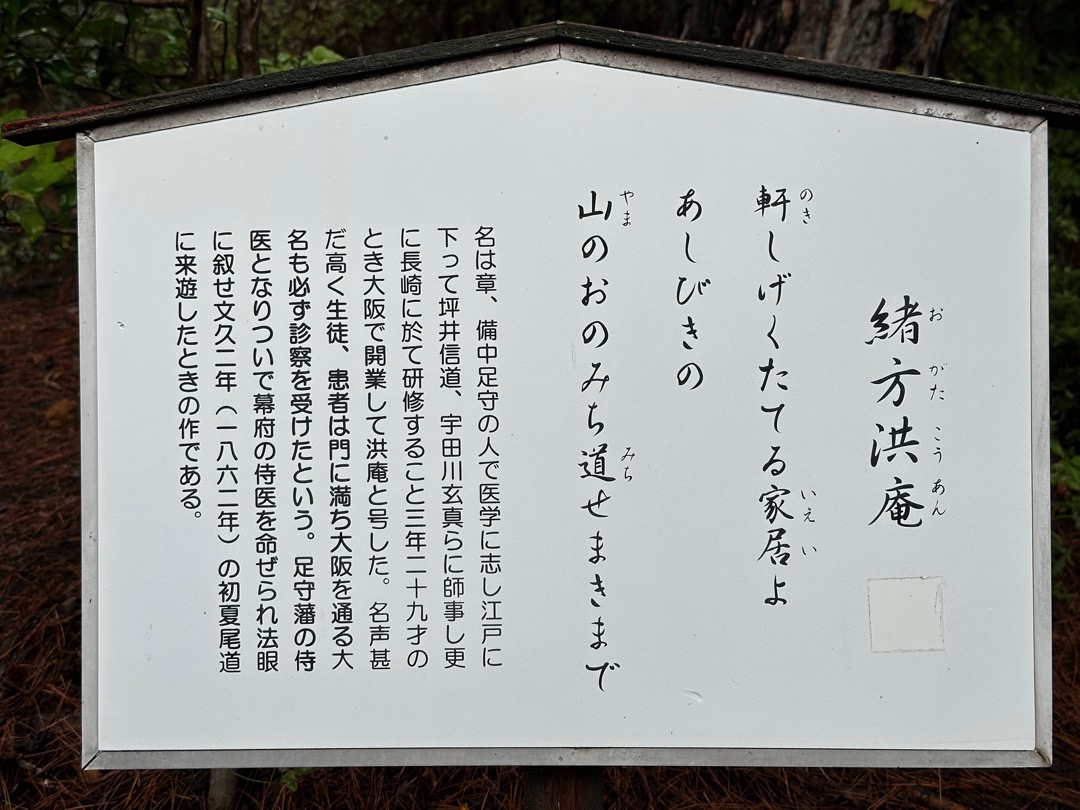 緒方洪庵
おがたこうあん
軒しげくたてる家居よ
のき いえい
あしびきの
山のおのみち道せまきまで
やま みち
名は章、備中足守の人で医学に志し江戸に
下って坪井信道、宇田川玄真らに師事し更
に長崎に於て研修すること三年二十九才の
とき大阪で開業して洪庵と号した。名声甚
だ高く生徒、患者は門に満ち大阪を通る大
名も必ず診察を受けたという。足守藩の侍
医となりついで幕府の侍医を命ぜられ法眼
に叙せ文久二年（一八六二年）の初夏尾道
に来遊したときの作である。